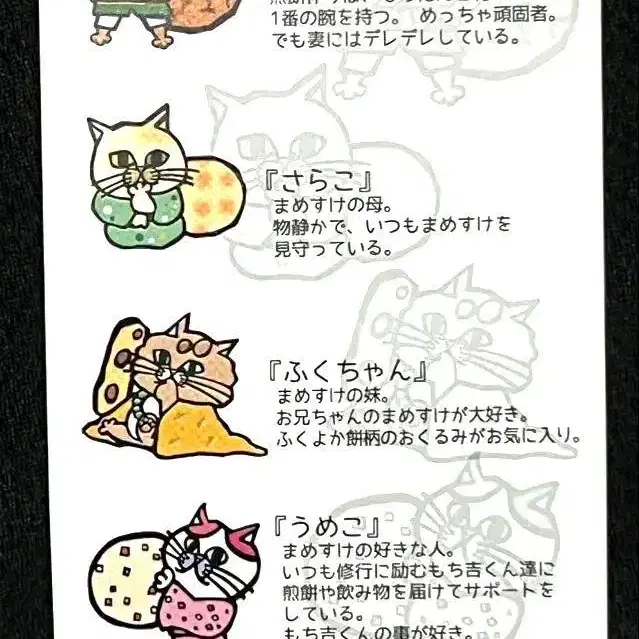 1番の腕を持つ。 めっちゃ頑固者。
でも妻にはデレデレしている。
『さらこ』
まめすけの母。
物静かで、いつもまめすけを
見守っている。
『ふくちゃん』
まめすけの妹。
お兄ちゃんのまめすけが大好き。
ふくよか餅柄のおくるみがお気に入り。
『うめこ』
まめすけの好きな人。
いつも修行に励むもち吉くん達に
煎餅や飲み物を届けてサポートを
している。
もち吉くんの事が好き。